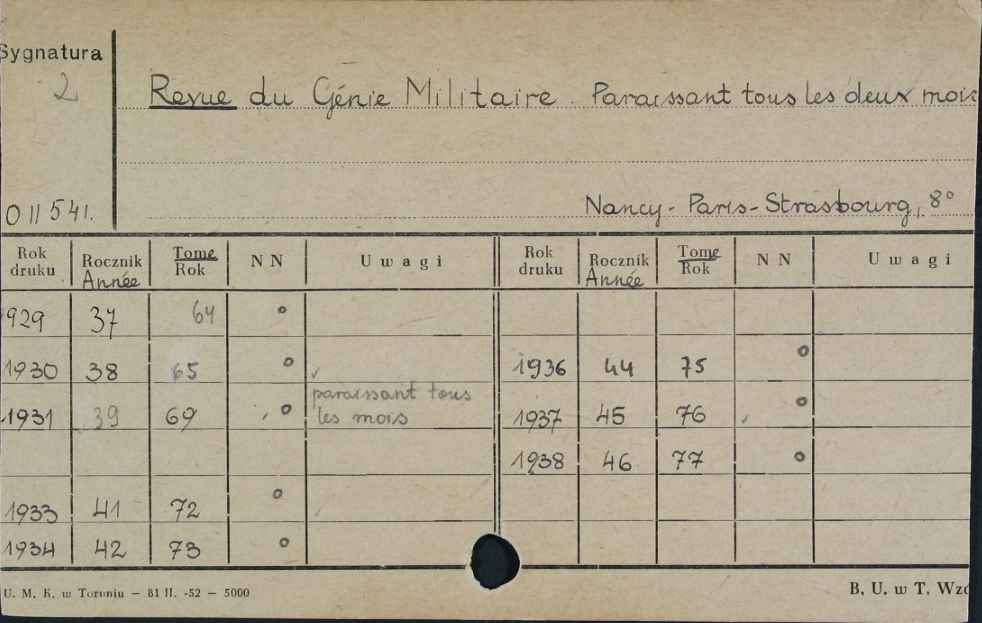 Sygnatura
2
Revue du Génie Militaire. Paraissant tous les deux mois
Nancy - Paris - Strasbourg, 8°
011541.
Rok druku Rocznik Année Tome Rok NN Uwagi Rok druku Rocznik Année Tome Rok NN Uwagi
929 37 64 o
1930 38 65 o 1936 44 75 o
paraissant tous
1931 39 69 o les mois 1937 45 76 o
1938 46 77 o
1933 41 72 o
1934 42 73 o
U. M. K. w Toruniu — 81 II. -52 — 5000
B. U. w T. Wzó